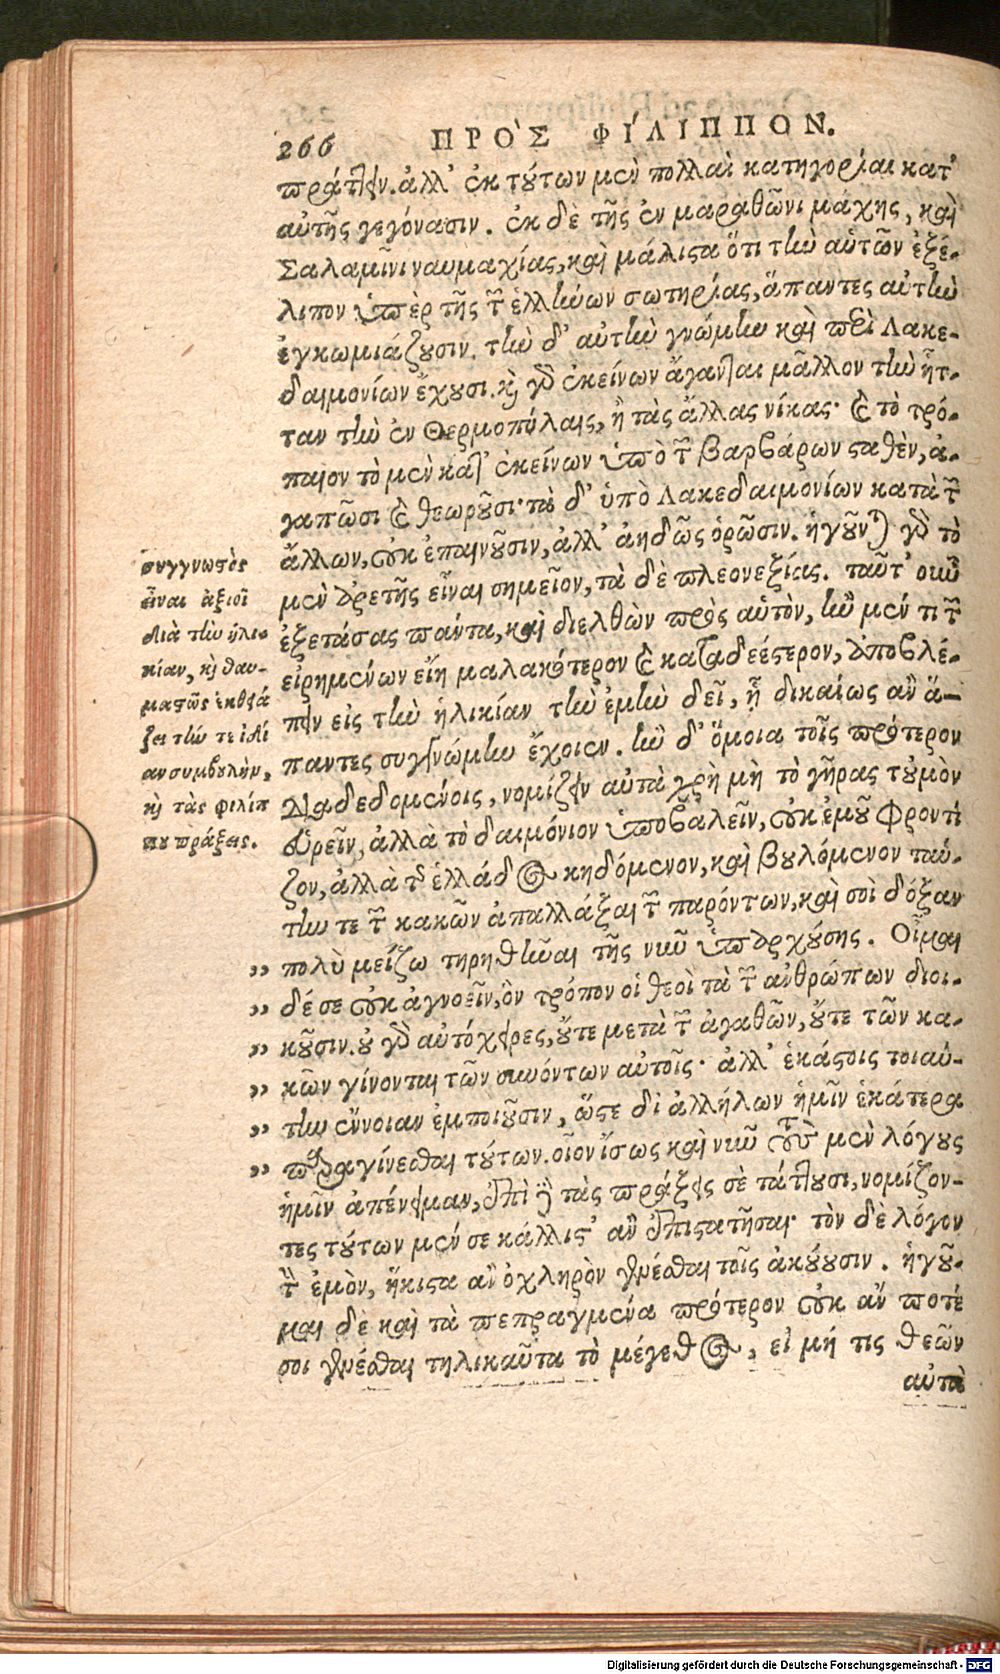 266 ΠΡΟ`Σ ΦΙ´ΛΙΠΠΟΝ.
πράττειν. ἀλλ' ἐκ τούτων μὲν πολλαὶ κατηγορίαι κατ'
αὐτῆς γεγόνασιν. ἐκ δὲ τῆς ἐν μαραθῶνι μάχης, καὶ
Σαλαμῖνι ναυμαχίας, καὶ μάλιστα ὅτι τὴν αὑτῶν ἐξέ-
λιπον ὑπὲρ τῆς τῶν ἑλλήνων σωτηρίας, ἅπαντες αὐτὴν
ἐγκωμιάζουσιν. τὴν δ' αὐτὴν γνώμην καὶ περὶ Λακε-
δαιμονίων ἔχουσι. καὶ γὰρ ἐκείνων ἄγανται μᾶλλον τὴν ἧτ-
ταν τὴν ἐν Θερμοπύλαις, ἢ τὰς ἄλλας νίκας· καὶ τὸ τρό-
παιον τὸ μὲν κατ' ἐκείνων ὑπὸ τῶν βαρβάρων σταθὲν, ἀ-
γαπῶσι καὶ θεωροῦσι· τὰ δ' ὑπὸ Λακεδαιμονίων κατὰ τῶν
ἄλλων, οὐκ ἐπαινοῦσιν, ἀλλ' ἀηδῶς ὁρῶσιν. ἡγοῦνται γὰρ τὸ
μὲν ἀρετῆς εἶναι σημεῖον, τὰ δὲ πλεονεξίας. ταῦτ' οὖν
ἐξετάσας πάντα, καὶ διελθὼν πρὸς αὑτὸν, ἢν μέν τι τῶν
εἰρημένων εἴη μαλακώτερον καὶ καταδεέστερον, ἀποβλέ-
πειν εἰς τὴν ἡλικίαν τὴν ἐμὴν δεῖ, ᾗ δικαίως ἂν ἅ-
παντες συγγνώμην ἔχοιεν. ἢν δ' ὅμοια τοῖς πρότερον
διαδεδομένοις, νομίζειν αὐτὰ χρὴ μὴ τὸ γῆρας τοὐμὸν
εὑρεῖν, ἀλλὰ τὸ δαιμόνιον ὑποβαλεῖν, οὐκ ἐμοῦ φροντί
ζον, ἀλλὰ τῆς ἑλλάδος κηδόμενον, καὶ βουλόμενον ταύ-
την τε τῶν κακῶν ἀπαλλάξαι τῶν παρόντων, καὶ σοὶ δόξαν
„ πολὺ μείζω τηρηθῆναι τῆς νῦν ὑπαρχούσης. Οἶμαι
„ δέ σε οὐκ ἀγνοεῖν, ὃν τρόπον οἱ θεοὶ τὰ τῶν ἀνθρώπων διοι-
„ κοῦσιν. οὐ γὰρ αὐτόχειρες, οὔτε μετὰ τῶν ἀγαθῶν, οὔτε τῶν κα-
„ κῶν γίνονται τῶν συνόντων αὐτοῖς· ἀλλ' ἑκάστοις τοιαύ-
„ την ἔννοιαν ἐμποιοῦσιν, ὥστε δι' ἀλλήλων ἡμῖν ἑκάτερα
„ παραγίνεσθαι τούτων. οἷον ἴσως καὶ νῦν τοὺς μὲν λόγους
ἡμῖν ἀπένειμαν, ἐπὶ δὲ τὰς πράξεις σὲ τάττουσι, νομίζον-
τες τούτων μέν σε κάλλιστ' ἂν ἐπιστατῆσαι· τὸν δὲ λόγον
τὸν ἐμὸν, ἥκιστα ἂν ὀχληρὸν γενέσθαι τοῖς ἀκούουσιν. ἡγοῦ-
μαι δὲ καὶ τὰ πεπραγμένα πρότερον οὐκ ἄν ποτέ
σοι γενέσθαι τηλικαῦτα τὸ μέγεθος, εἰ μή τις θεῶν
αὐτὰ
συγγνωστὸς
εἶναι ἀξιοῖ
διὰ τὴν ἡλι-
κίαν, καὶ θαυ-
μαστῶς ἐκθειά
ζει τήν τε ἰδί
αν συμβουλὴν,
καὶ τὰς φιλίπ
που πράξεις.
Digitalisierung gefördert durch die Deutsche Forschungsgemeinschaft - DFG